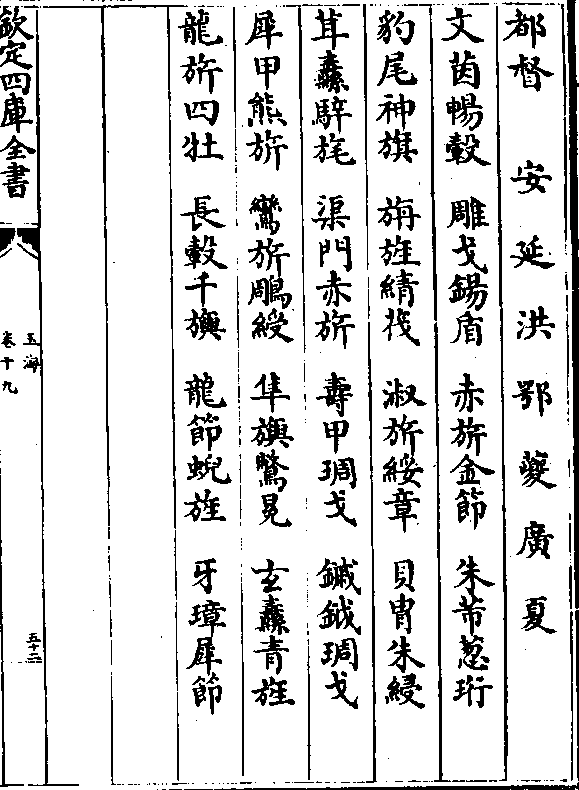 都督　安延洪鄂夔廣夏
文茵暢轂　雕戈鍚盾　赤旂金節　朱芾葱珩
豹尾神旗　旃旌綪茷　淑旂綏章　貝胄朱綅
茸纛騂旄　渠門赤旂　壽甲琱戈　鏚鉞琱戈
犀甲熊旂　鸞旂鵰綬　隼旟鷩冕　玄纛青旌
龍旂四牡　長轂千旟　龍節蜺旌　牙璋犀節
欽定四庫全書
玉海
卷十九
五十二